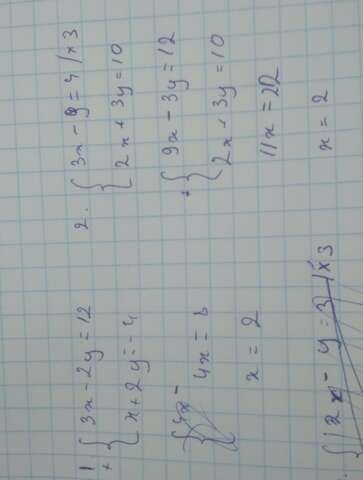 1 { 3x - 2y = 12
+ { x + 2y = -4
4x = 8
x = 2
2. { 3x - y = 4 / x 3
{ 2x + 3y = 10
+ { 9x - 3y = 12
{ 2x + 3y = 10
11x = 22
x = 2